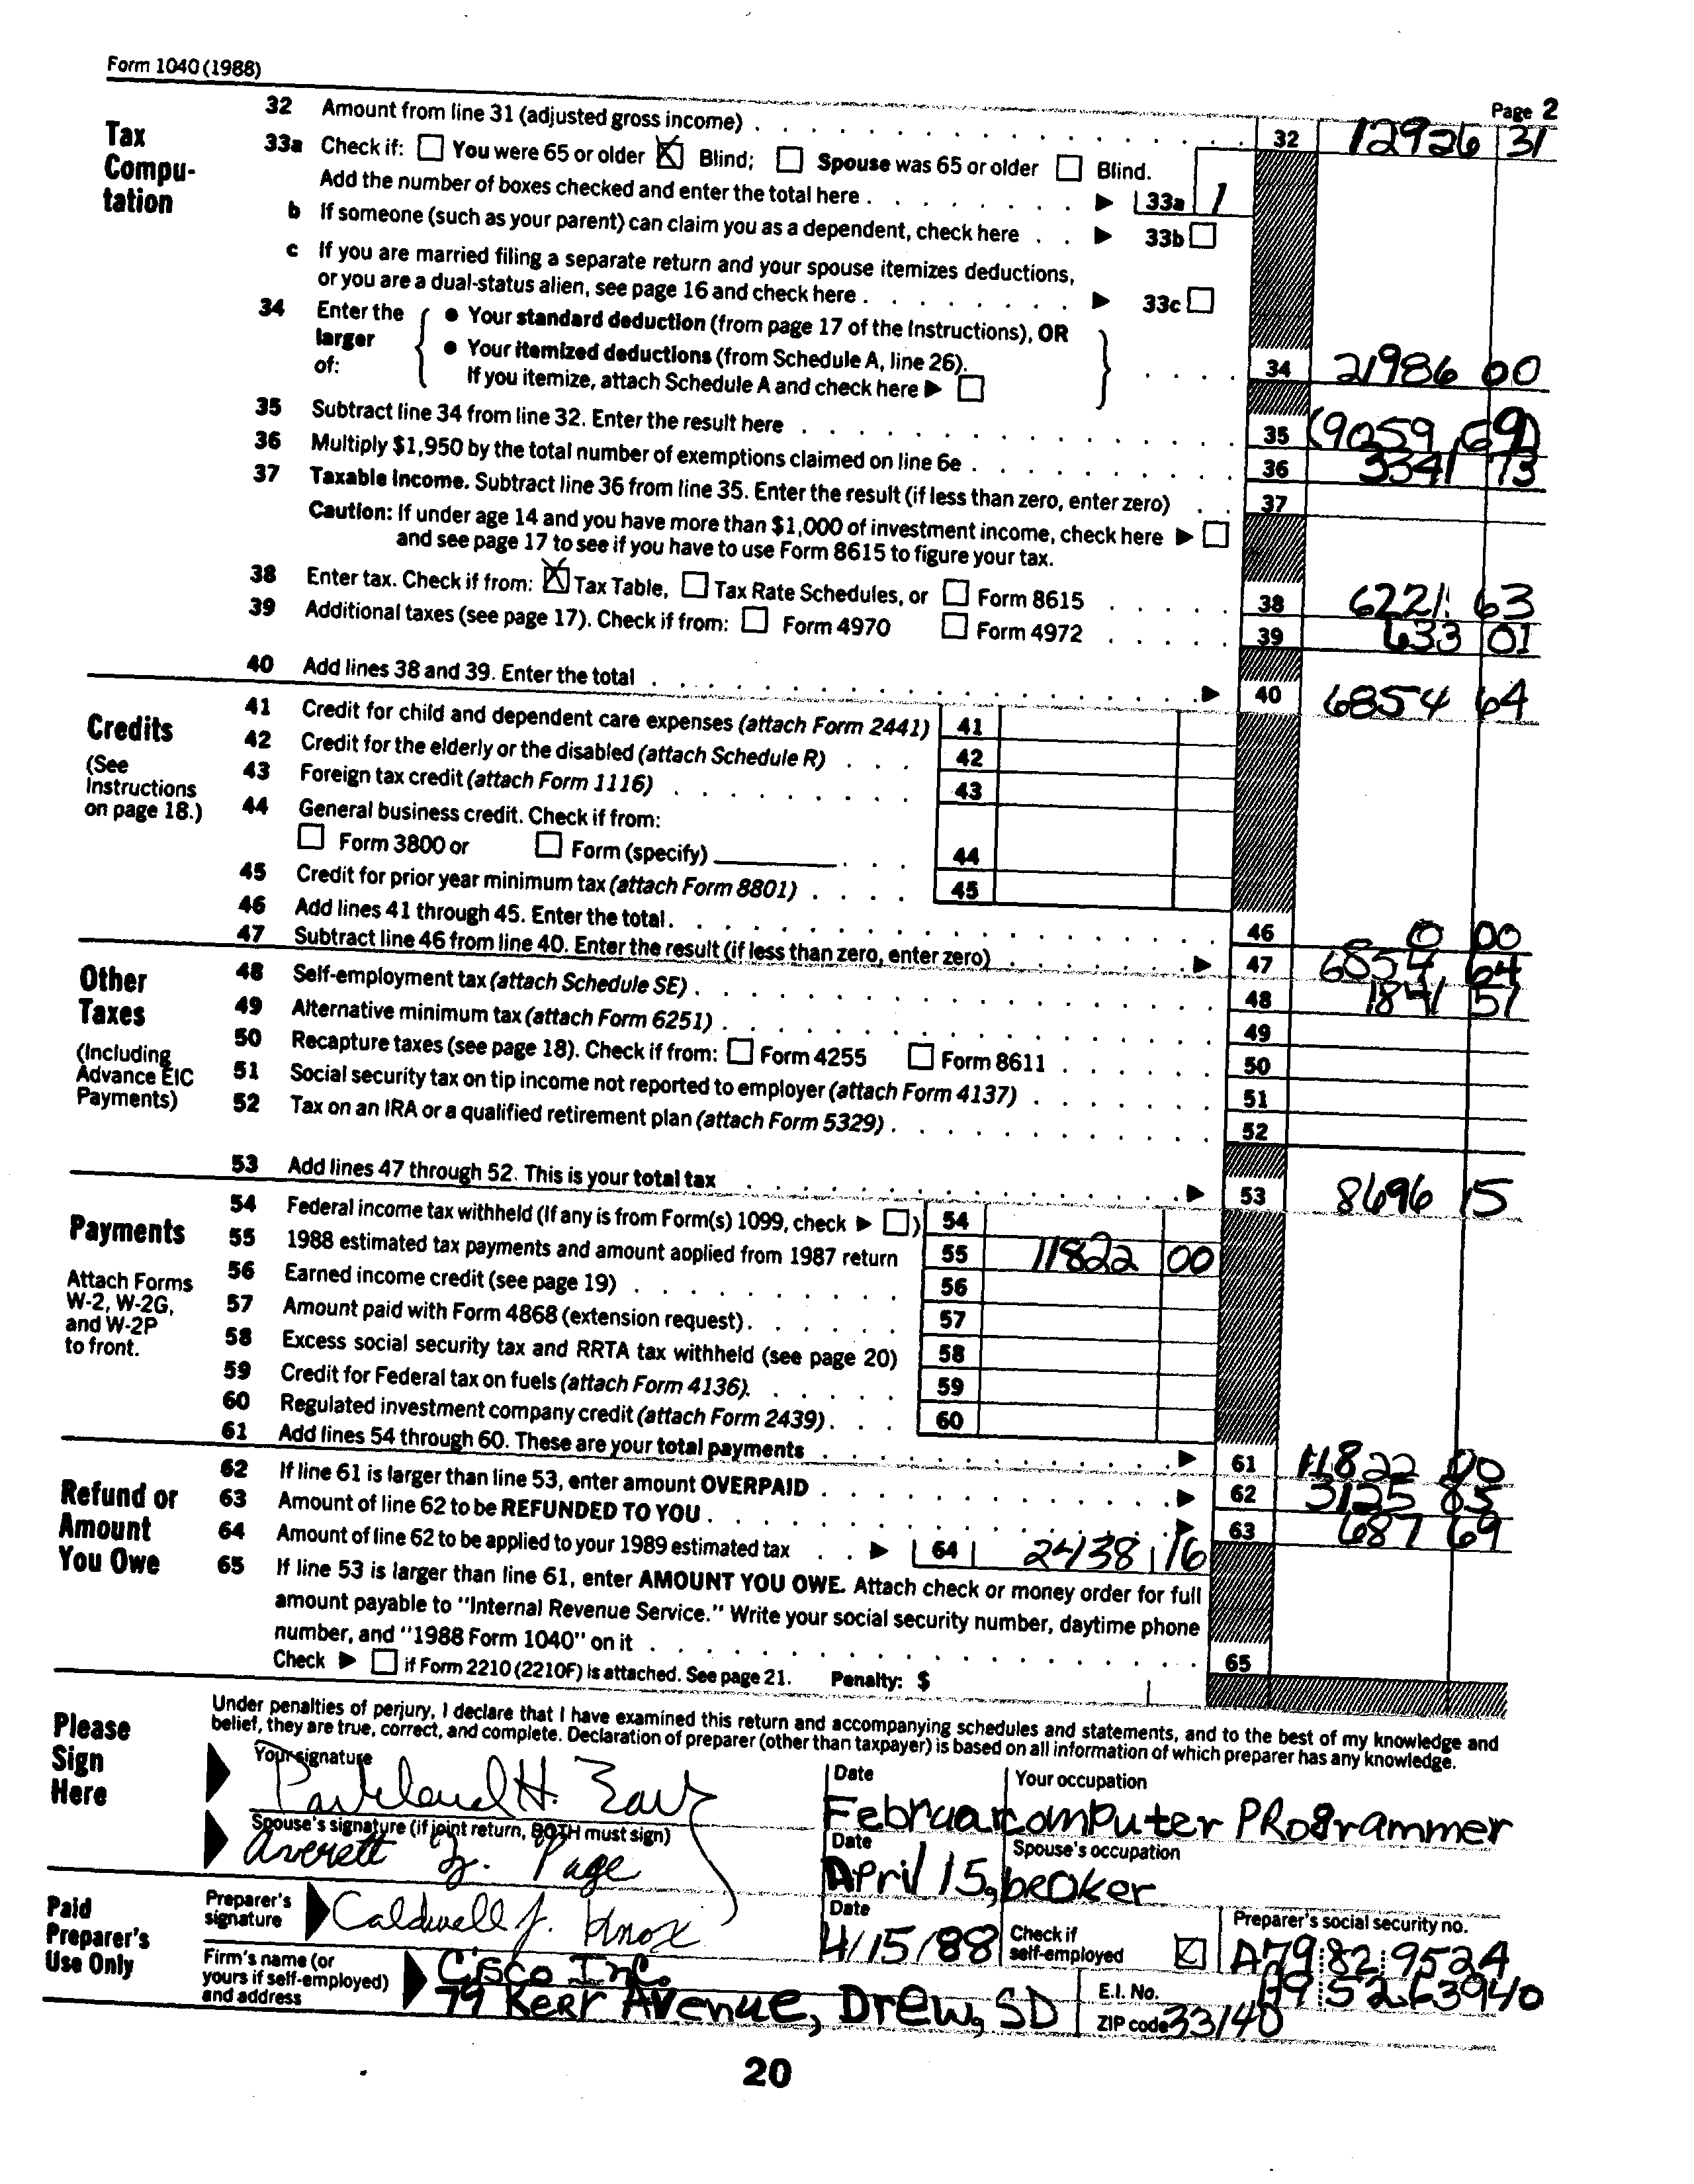 Form 1040 (1988)
Page 2
Tax Compu-tation
32 Amount from line 31 (adjusted gross income) 32 12926 31
33a Check if: You were 65 or older X Blind; Spouse was 65 or older Blind.
Add the number of boxes checked and enter the total here 33a 1
b If someone (such as your parent) can claim you as a dependent, check here 33b
c If you are married filing a separate return and your spouse itemizes deductions,
or you are a dual-status alien, see page 16 and check here 33c
34 Enter the larger of:
● Your standard deduction (from page 17 of the Instructions), OR
● Your itemized deductions (from Schedule A, line 26).
If you itemize, attach Schedule A and check here 34 21986 00
35 Subtract line 34 from line 32. Enter the result here 35 (9059 69)
36 Multiply $1,950 by the total number of exemptions claimed on line 6e 36 3341 73
37 Taxable income. Subtract line 36 from line 35. Enter the result (if less than zero, enter zero) 37
Caution: If under age 14 and you have more than $1,000 of investment income, check here
and see page 17 to see if you have to use Form 8615 to figure your tax.
38 Enter tax. Check if from: X Tax Table, Tax Rate Schedules, or Form 8615 38 6221 63
39 Additional taxes (see page 17). Check if from: Form 4970 Form 4972 39 633 01
40 Add lines 38 and 39. Enter the total 40 6854 64
Credits
(See Instructions on page 18.)
41 Credit for child and dependent care expenses (attach Form 2441) 41
42 Credit for the elderly or the disabled (attach Schedule R) 42
43 Foreign tax credit (attach Form 1116) 43
44 General business credit. Check if from:
Form 3800 or Form (specify) 44
45 Credit for prior year minimum tax (attach Form 8801) 45
46 Add lines 41 through 45. Enter the total. 46 0 00
47 Subtract line 46 from line 40. Enter the result (if less than zero, enter zero) 47 6854 64
Other Taxes
(Including Advance EIC Payments)
48 Self-employment tax (attach Schedule SE) 48 1841 51
49 Alternative minimum tax (attach Form 6251) 49
50 Recapture taxes (see page 18). Check if from: Form 4255 Form 8611 50
51 Social security tax on tip income not reported to employer (attach Form 4137) 51
52 Tax on an IRA or a qualified retirement plan (attach Form 5329) 52
53 Add lines 47 through 52. This is your total tax 53 8696 15
Payments
Attach Forms W-2, W-2G, and W-2P to front.
54 Federal income tax withheld (If any is from Form(s) 1099, check ) 54
55 1988 estimated tax payments and amount applied from 1987 return 55 11822 00
56 Earned income credit (see page 19) 56
57 Amount paid with Form 4868 (extension request) 57
58 Excess social security tax and RRTA tax withheld (see page 20) 58
59 Credit for Federal tax on fuels (attach Form 4136). 59
60 Regulated investment company credit (attach Form 2439) 60
61 Add lines 54 through 60. These are your total payments 61 11822 00
Refund or Amount You Owe
62 If line 61 is larger than line 53, enter amount OVERPAID 62 3125 85
63 Amount of line 62 to be REFUNDED TO YOU 63 687 69
64 Amount of line 62 to be applied to your 1989 estimated tax 64 2438 16
65 If line 53 is larger than line 61, enter AMOUNT YOU OWE. Attach check or money order for full
amount payable to "Internal Revenue Service." Write your social security number, daytime phone
number, and "1988 Form 1040" on it 65
Check if Form 2210 (2210F) is attached. See page 21. Penalty: $
Please Sign Here
Under penalties of perjury, I declare that I have examined this return and accompanying schedules and statements, and to the best of my knowledge and
belief, they are true, correct, and complete. Declaration of preparer (other than taxpayer) is based on all information of which preparer has any knowledge.
Your signature Date Your occupation
H. Februar computer PRogrammer
Spouse's signature (if joint return, BOTH must sign) Date Spouse's occupation
Averett Page April 15, beoker
Paid Preparer's Use Only
Preparer's signature Caldwell J. Knox Date 4/15/88 Check if self-employed Preparer's social security no. A79 82 9524
Firm's name (or yours if self-employed) and address Cisco Inc. E.I. No. A9 5263940
79 Kerr Avenue, Drew, SD ZIP code 33140
20